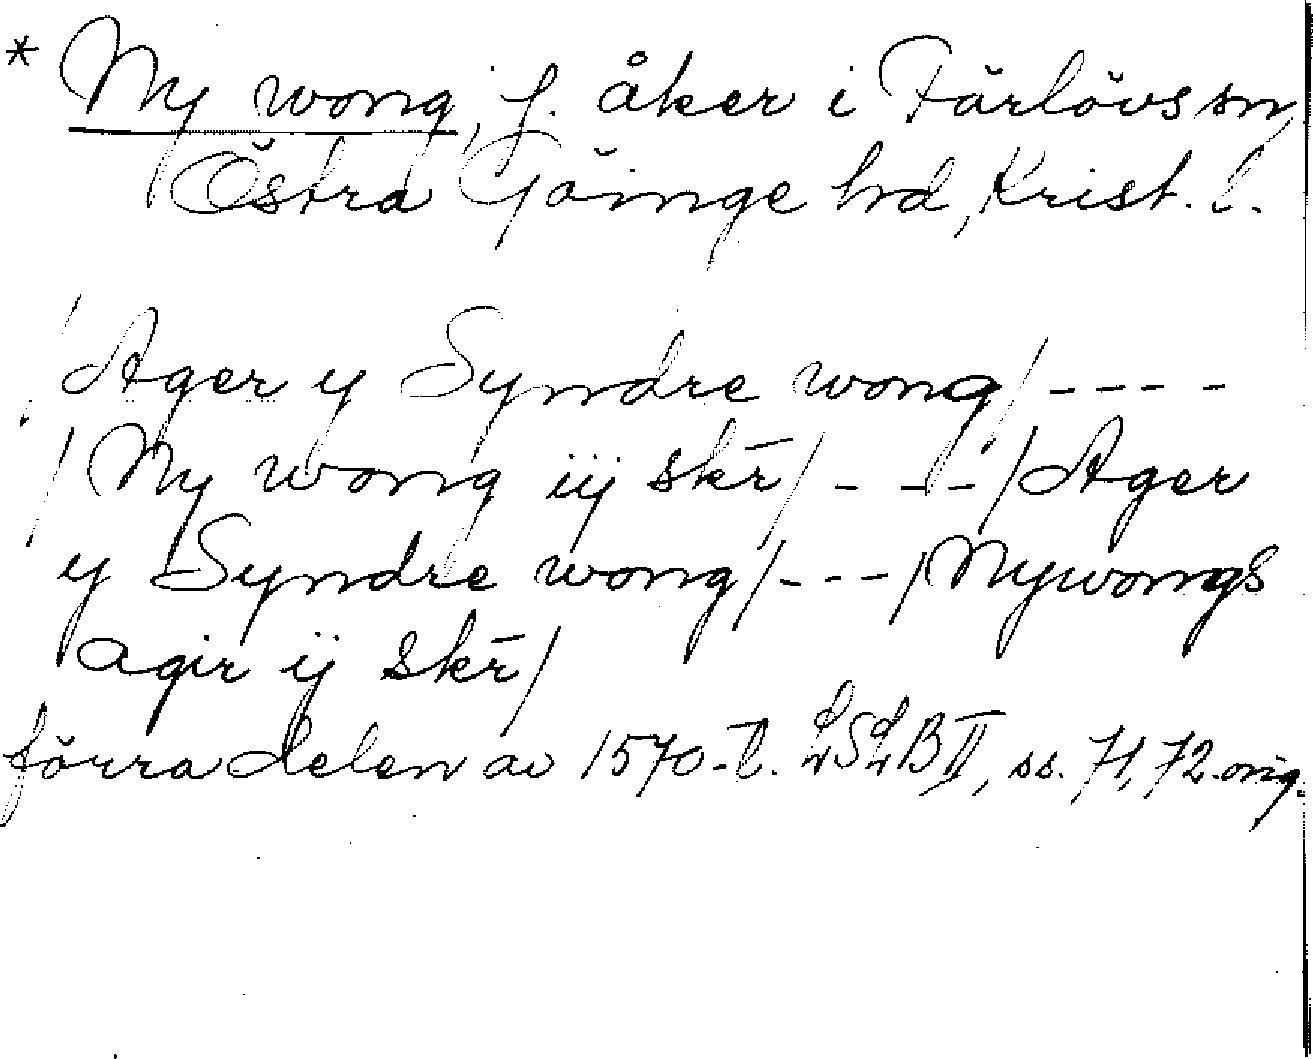 * Ny wong, f. åker i Färlövs sn,
Östra Göinge hd, Krist. l.
Ager y Syndre wong/ - - - -
/Ny wong iij skr̄/ - - - /Ager
y Syndre wong/ - - - /Nywongs
agir ij skr̄/
förra delen av 1570-t. LSLB II, ss. 71, 72. orig.